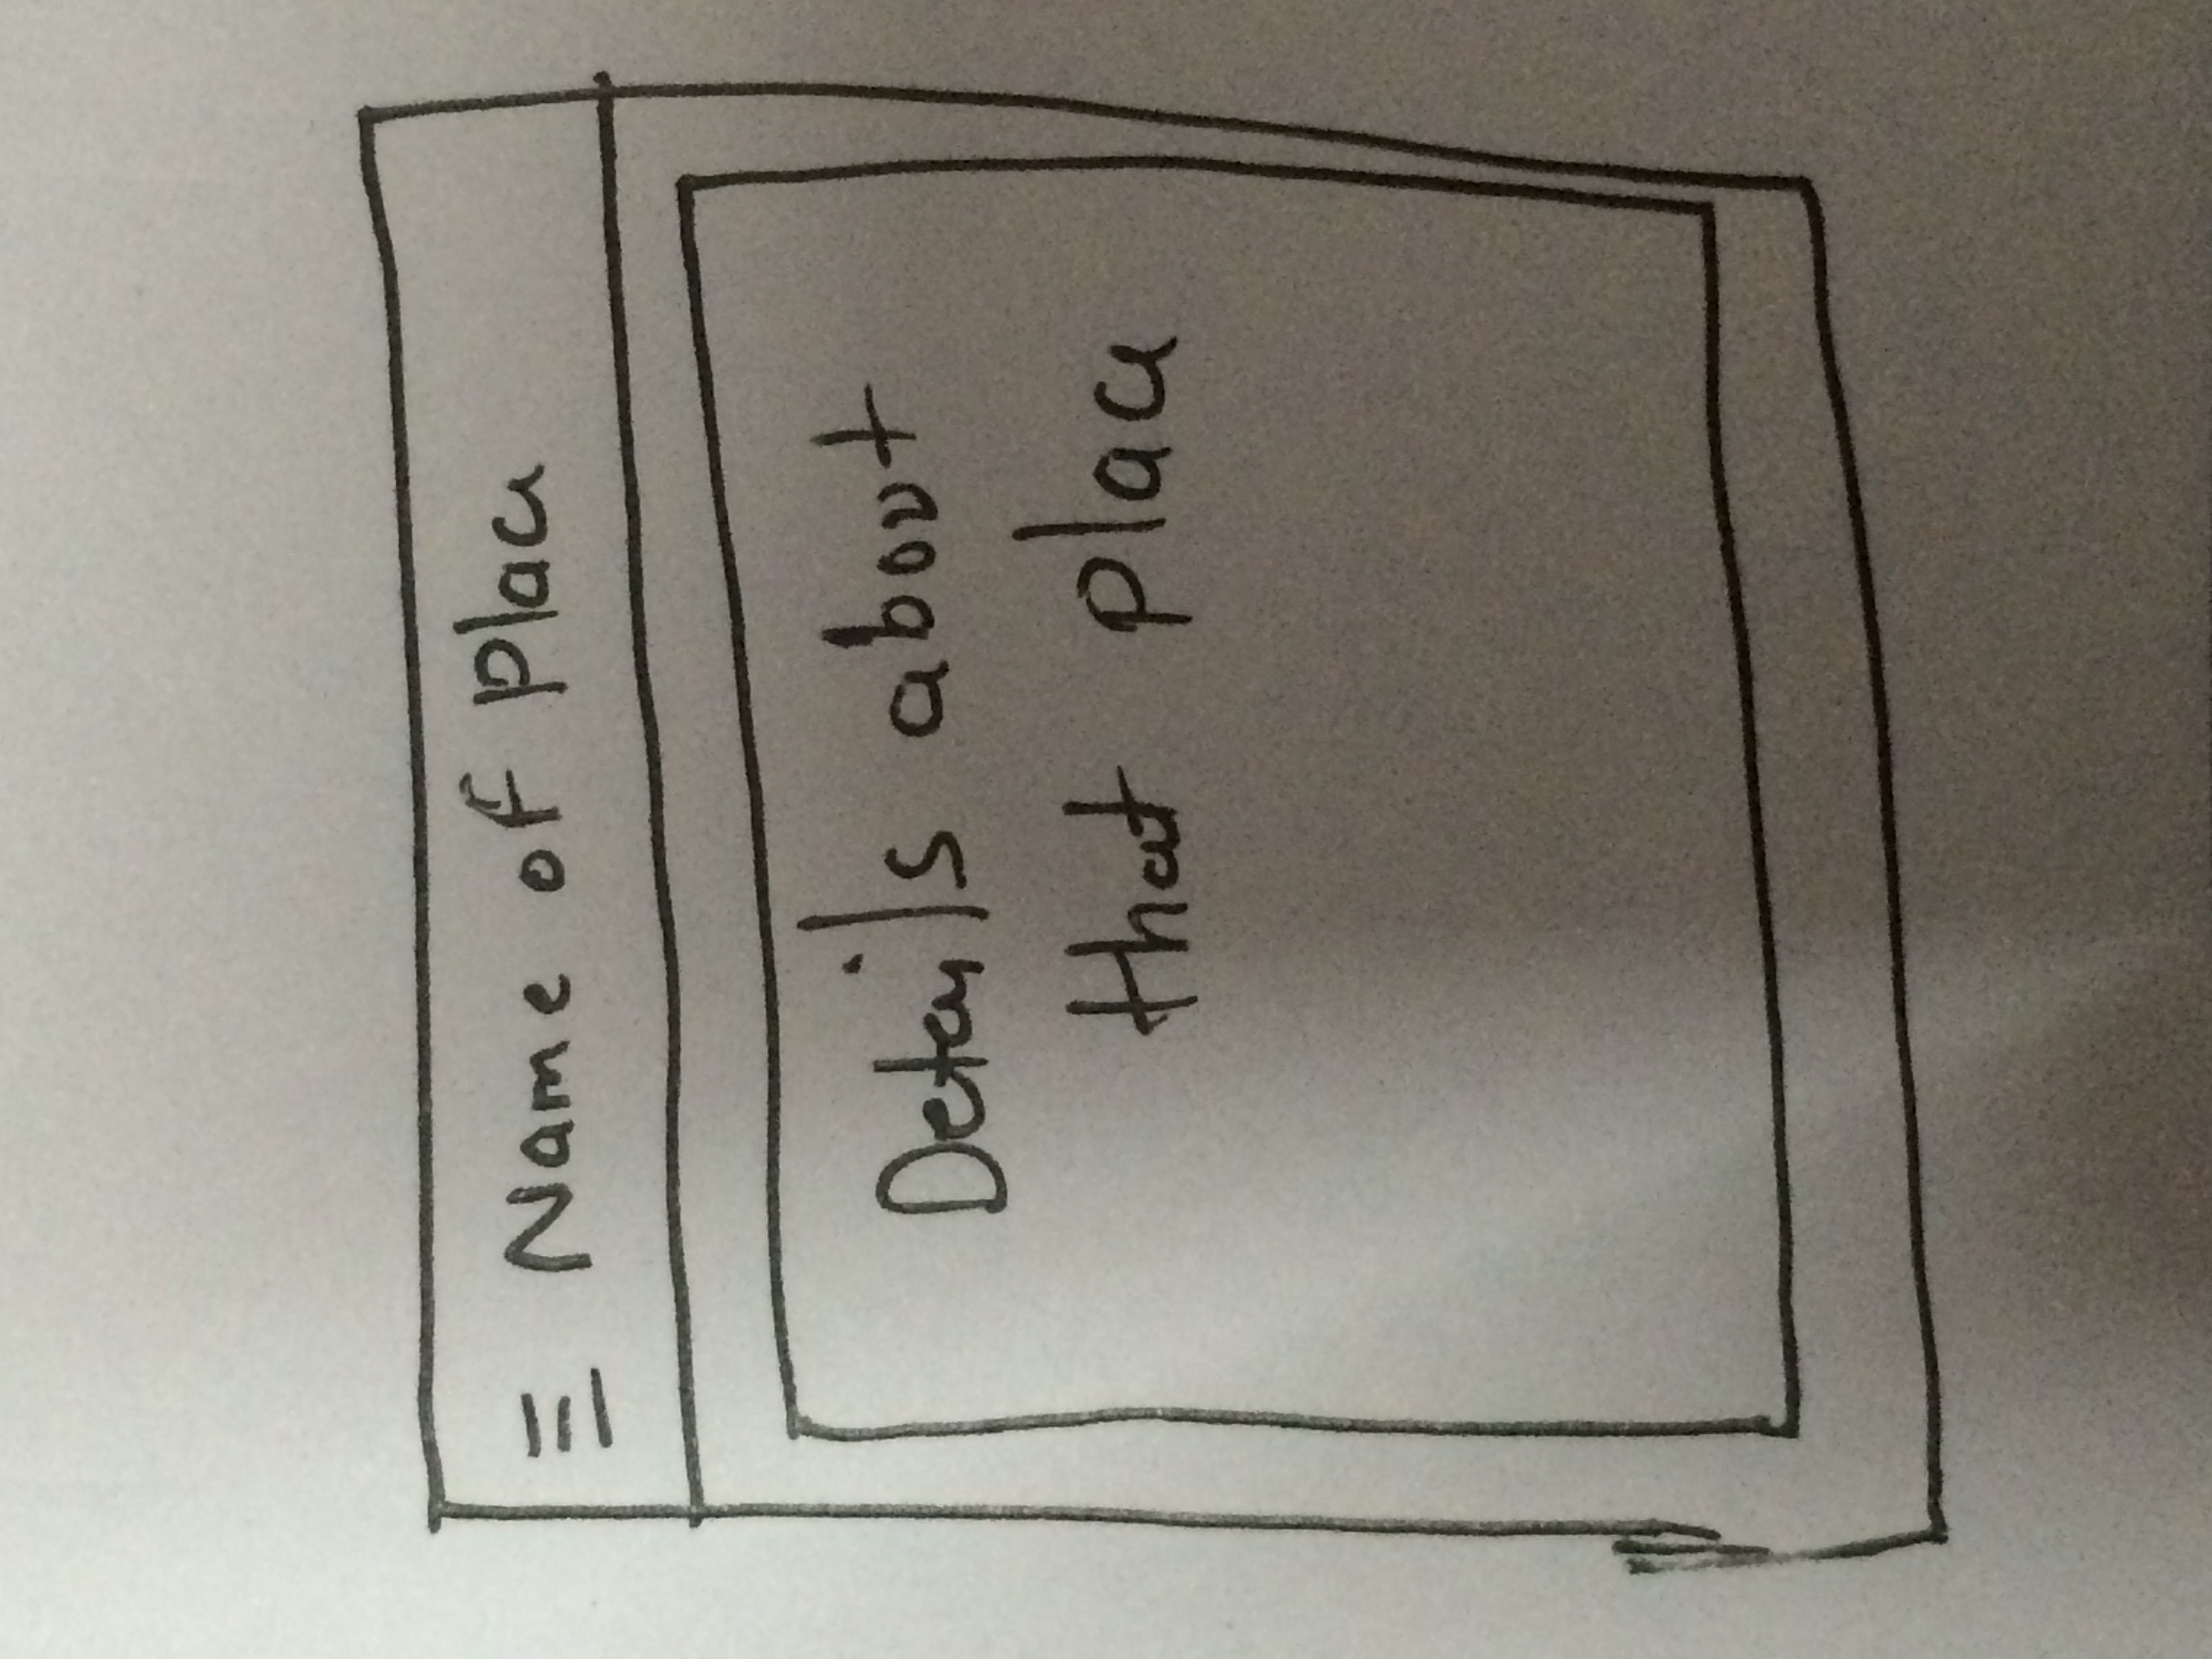 Name of Place
Details about
that place